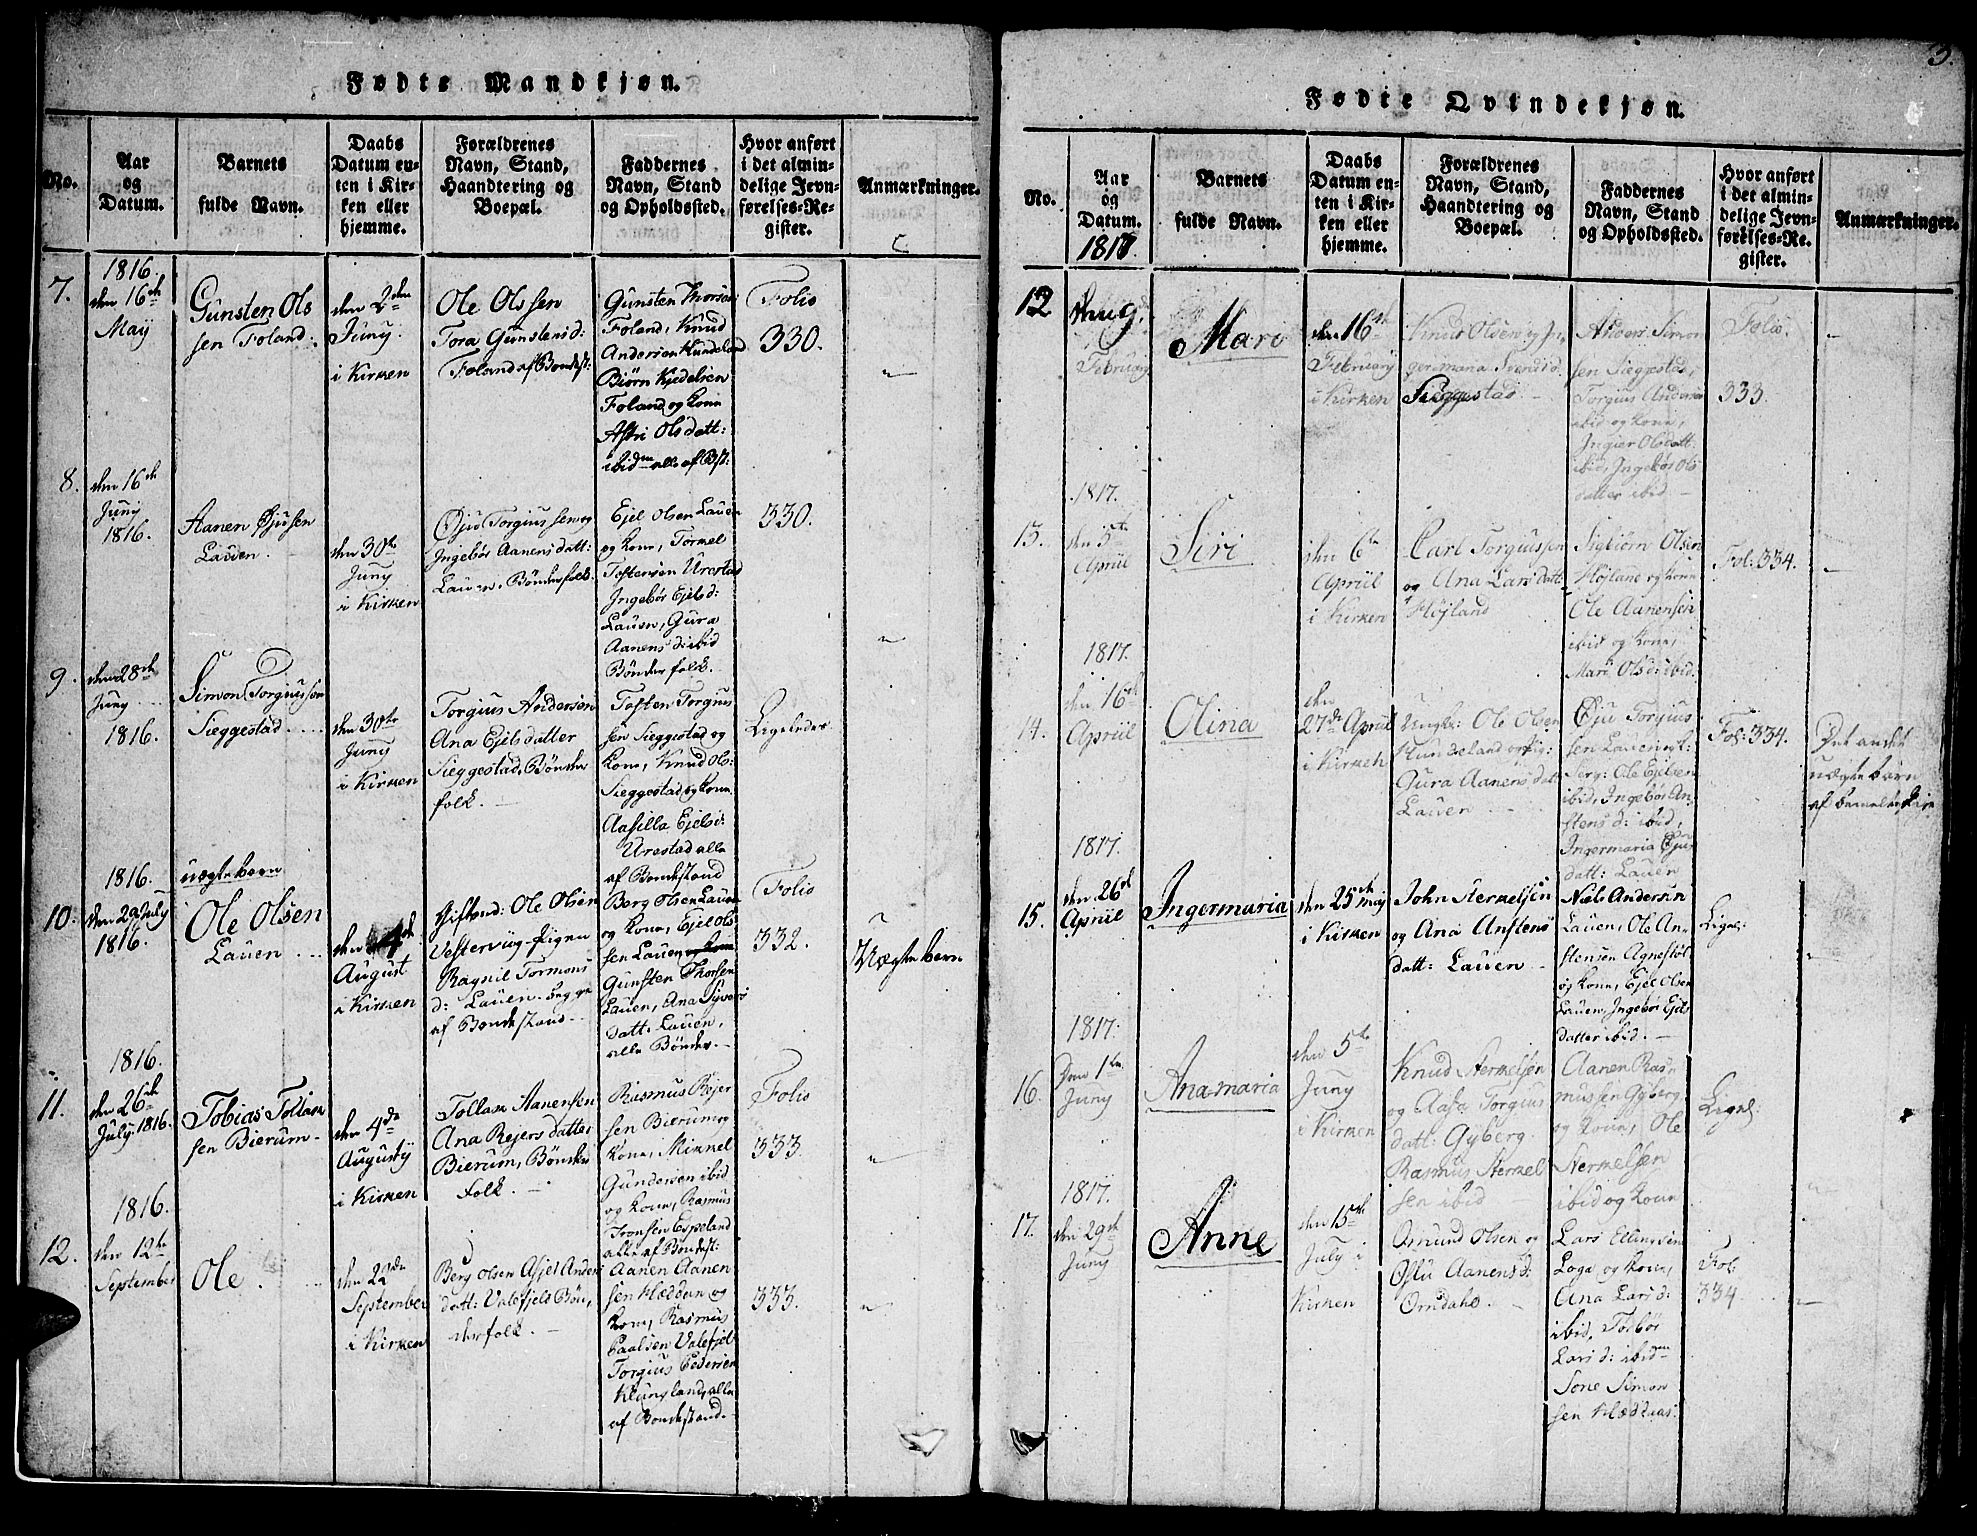 Fødte Mandkjøn.
No.
Aar
og
Datum.
Barnets
fulde Navn.
Daabs
Datum en-
ten i Kir-
ken eller
hjemme.
Forældrenes
Navn, Stand,
Haandtering og
Boepæl.
Faddernes
Navn, Stand
og Opholdssted.
Hvor anført
i det almin-
delige Jevn-
førelses-Re-
gister.
Anmærkninger.
7.
1816.
den 16de
Maÿ
Gunsten Ols
sen Foland.
den 2den
Juny.
i Kirken
Ole Olssen
Tora Gunstensd:
Foland af Bondest:
Gunsten Thorsen
Foland, Knud
Andersen Kundeland
Biørn Kjedelsen
Foland og Kone
Astri Olsdatt:
ibidm alle af Bst:
Folio
330.
8.
den 16de
Juny
1816.
Aanen Øjusen
Lauen.
den 30te
Juny
i Kirken
Øju Torgiussen og
Ingebør Aanensdatt:
Lauen, Bønderfolk.
Ejel Olsen Lauen
og Kone, Tormel
Tostensen Urestad
Ingebør Ejelsd:
Lauen, Gura
Aanensd: ibid
Bønderfolk.
330.
9.
den 28de
Juny
1816.
Simon Torgiussen
Sieggestad.
den 30te
Juny
i Kirken
Torgius Andersen
Ana Ejelsdatter
Sieggestad, Bønder
folk.
Tosten Torgius
sen Sieggestad og
Kone, Knud Ols:
Sieggestad, og Kone
Aasilla Ejelsd:
Urestad alle
af Bondestand
Ligeledes
10.
1816.
den 29 July
1816.
uægte barn
Ole Olsen
Lauen
den 4de
August
i Kirken
Giftmd: Ole Olsen
Vestervüg Pigen
Ragnil Tormons
d: Lauen. begge
af Bondestand
Berg Olsen Lauen
og Kone, Ejel Ols
sen Lauen
Gunsten Thorsen
Lauen, Ana Syvers
datt: Lauen,
alle Bønder.
Folio
332.
Uægte barn
11.
1816.
den 26de
July 1816.
Tobias Tollak
sen Bierum
den 4de
Augusty
i Kirken
Tollak Aanensen
Ana Rejersdatter
Bierum, Bønder
folk.
Rasmus Rejer
sen Bierum og
Kone, Mikkel
Gundersen ibid
og Kone, Rasmus
Tronsen Espeland
alle af Bondest:
Folio
333.
12.
1816.
den 12te
September
Ole
den 22de
September
i Kirken
Berg Olsen Asjel Anders
datt: Valefjeld Bøn,
derfolk.
Aanen Aanen
sen Hæddan og
Kone, Rasmus
Paalsen Valefjel
Torgius Pedersen
Klungland, alle
af Bondestand.
333.
3.
Fødte Qvindekjøn.
No.
Aar
og
Datum.
1817.
Barnets
fulde Navn.
Daabs
Datum en-
ten i Kir-
ken eller
hjemme.
Forældrenes
Navn, Stand,
Haandtering og
Boepæl.
Faddernes
Navn, Stand
og Opholdssted.
Hvor anført
i det almin-
delige Jevn-
førelses-Re-
gister.
Anmærkninger.
12
February
Mari
den 16de
February
i Kirken
Knud Olsen og In,
germaria Svendsd.
Sieggestad
Anders Simon
sen Sieggestad,
Torgius Andersen
ibid og Kone,
Ingier Olsdatt
ibid, Ingebør Ols
datter ibid
Folio.
333.
13.
1817.
den 5te
Apriil
Siri
den 6te
Apriil
i Kirken
Carl Torguissen
og Ana Larsdatt
Højland
Sigbiørn Olsen
Højland og Kone
Ole Aanensen
ibid og Kone,
Mari Olsd: ibid.
Fol: 334.
14.
1817.
den 16de
Apriil
Olina
den
27de Apriil
i Kirken
Ungk: Ole Olsen
Kundeland og Pig:
Gura Aanensdatt
Lauen
Øju Torgius
sen Lauen
Ole Ejelsen
ibid, Ingebør An,
stensd: ibid,
Ingermaria Øjus
datt: Lauen
Fol: 334.
Det andet
uægte barn
af bemeldte Pige
15.
1817.
den 26de
Apriil
Ingermaria
den 25de maj
i Kirken
John Sterkelsen
og Ana Anstens
datt: Lauen
Niels Andersen
Lauen, Ole An-
stensen Agnestøl
og Kone, Ejel Olsen
Lauen, Ingebør Ejels
datter ibid.
Ligel:
16.
1817.
Dom 1te
Juny
Anamaria
den 5te
Juny
i Kirken
Knud Sterkelsen
og Aasa Torgius
datt: Gyberg.
Rasmus Sterkel
sen ibid
Aanen Ras,
mussen Gyberg
og Kone, Ole
Sterkelsen
ibid og Kone
Ligel:
17.
1817.
den 29de
Juny
Anne
den 15de
July i
Kirken
Omund Olsen og
Aanensd:
Omdahl.
Lars Ellingsen
Loga og Kone,
Ana Larsd:
ibid, Torbør
Larsd: ibidm
Tone Simon
sen
Fol:
334